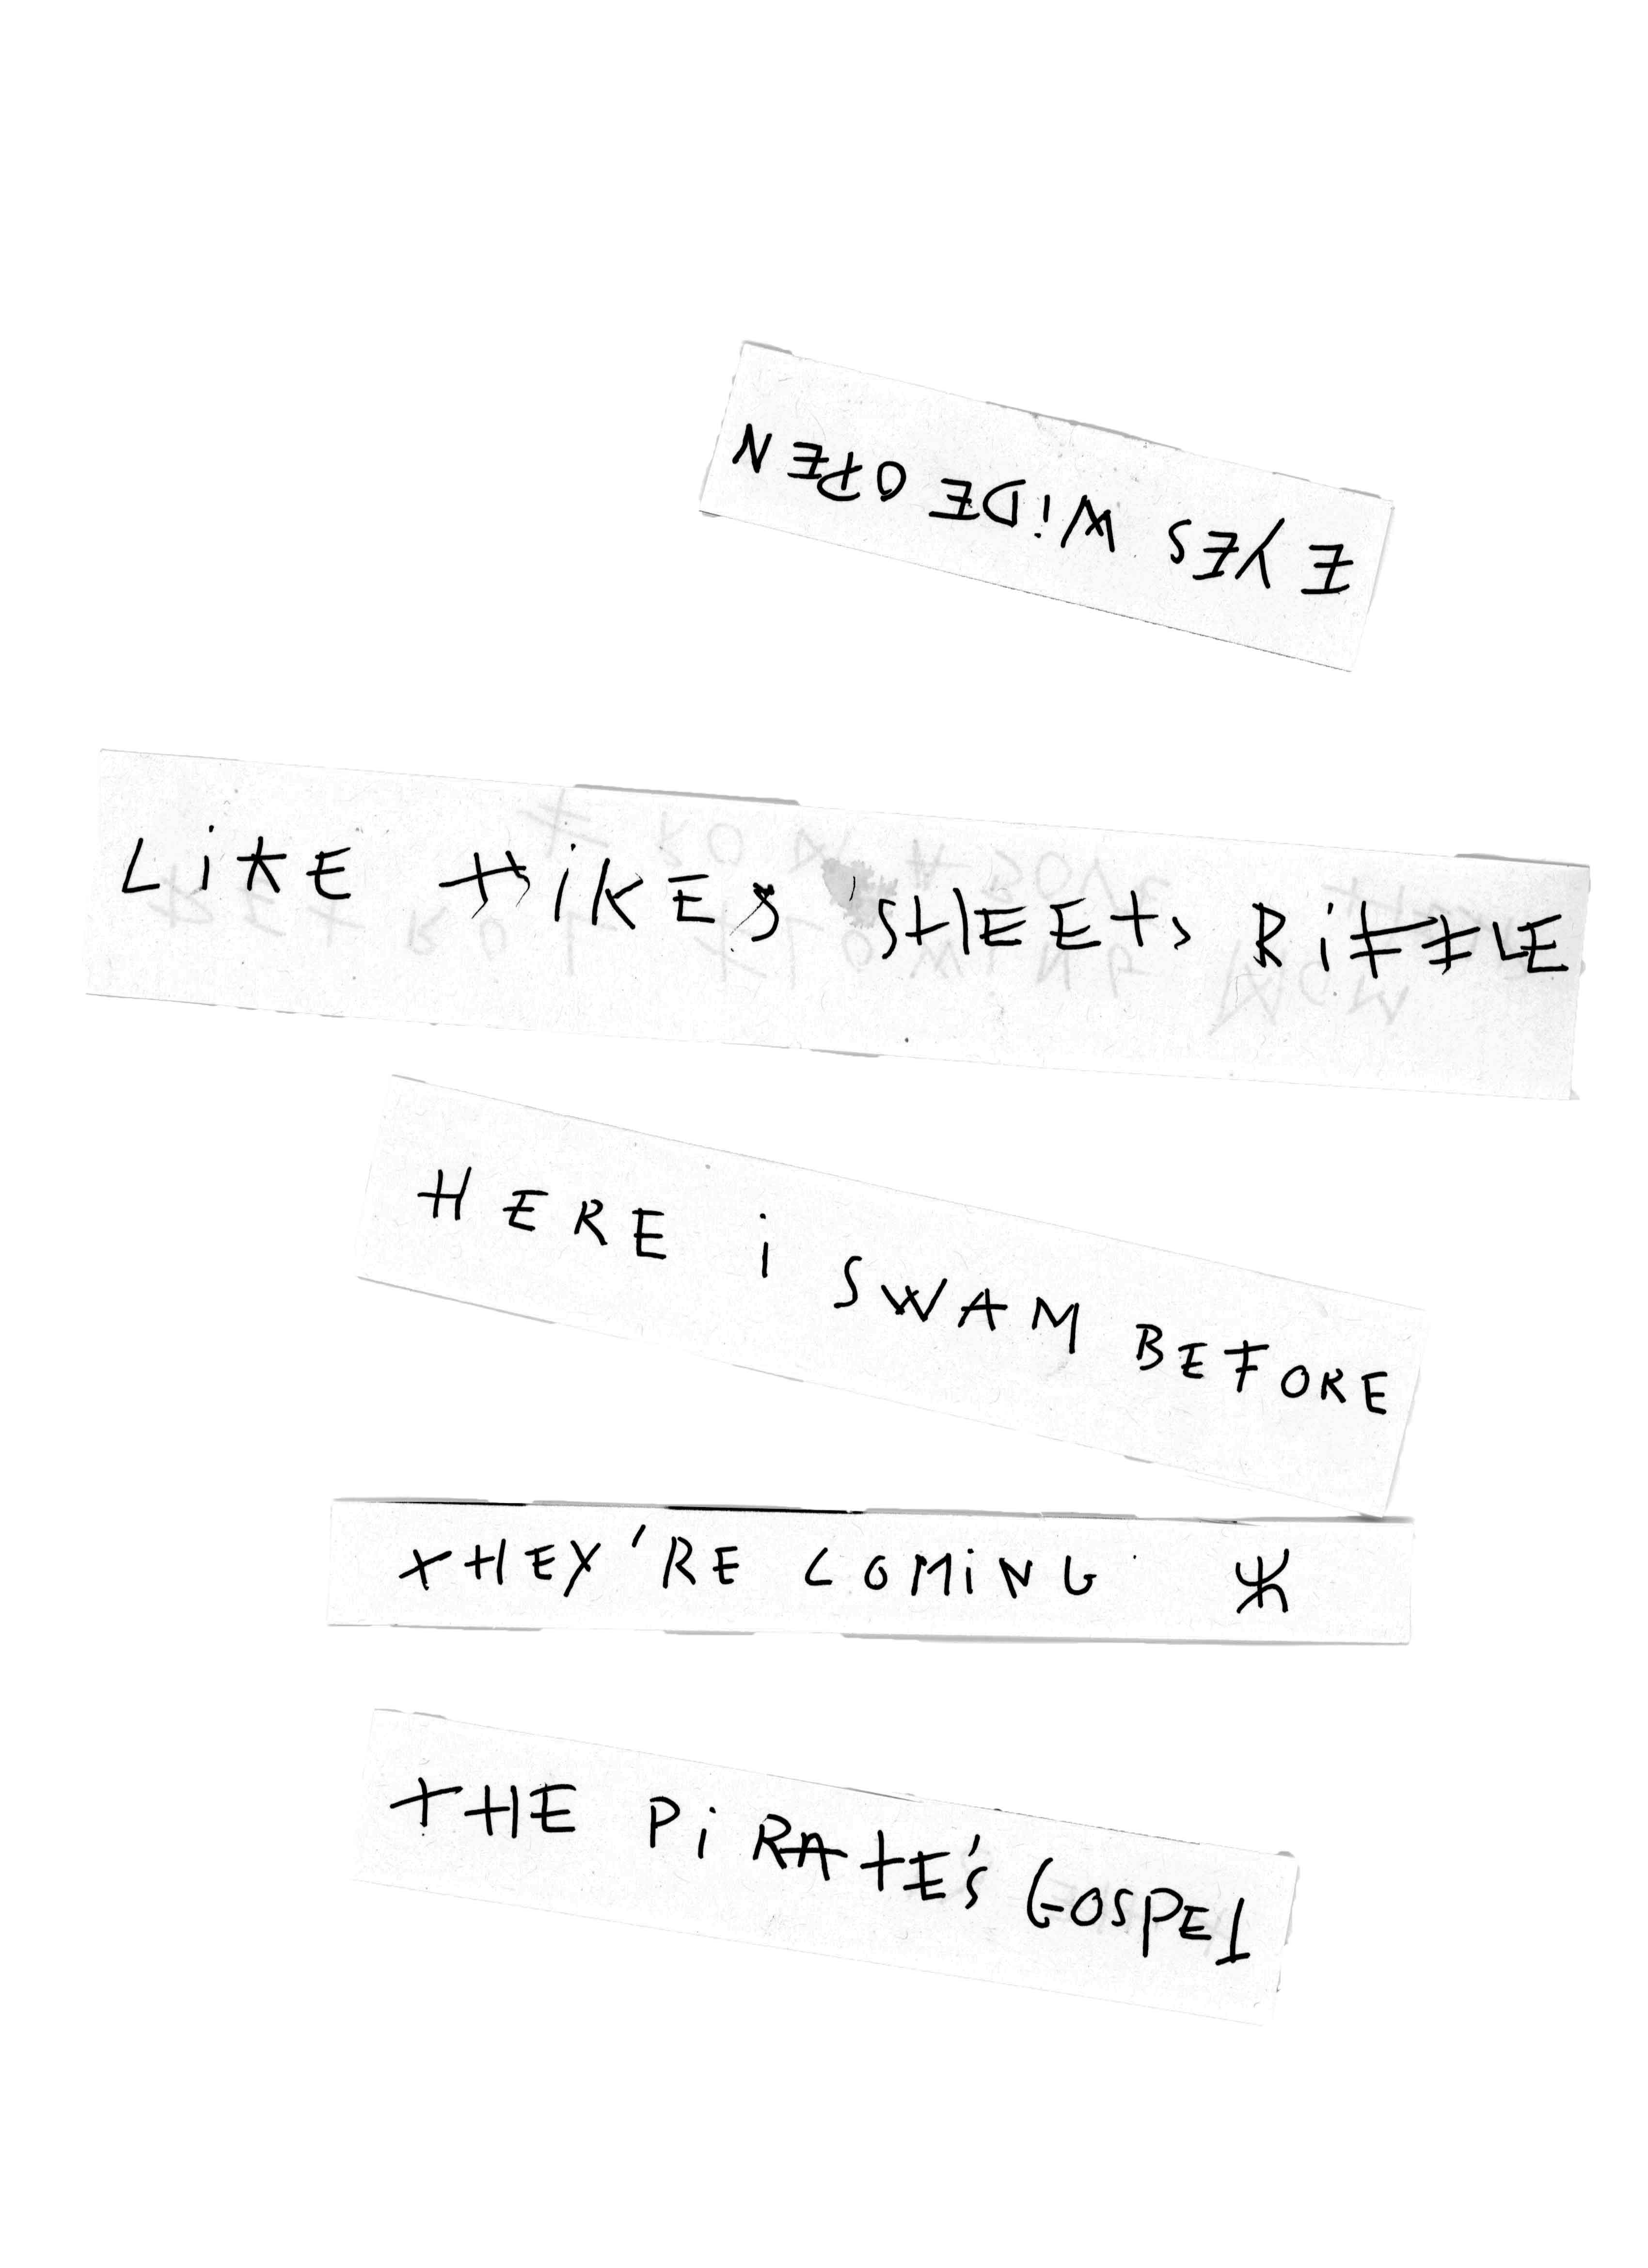 EYES WiDE OPEN
LiKE SHEETS RiFFLE
HERE i SWAM BEFORE
THEY'RE COMiNG ⵣ
THE PiRATE'S GOSPEL